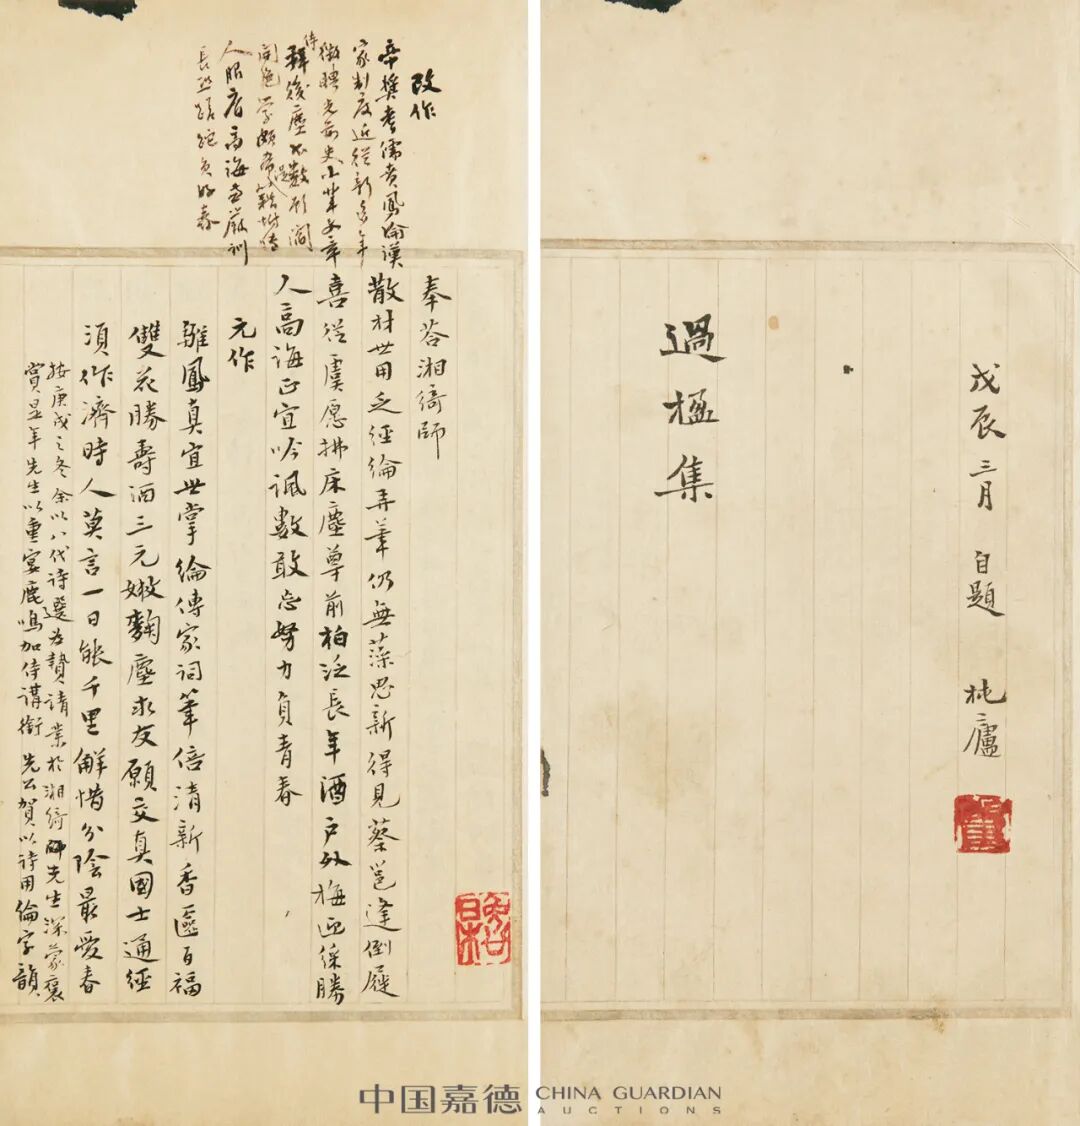 戊辰三月 自題 杶廬
過楹集
改作
奬耆儒貴鳳綸漢
家制度近從新多年
徵聘光前史小筆文章
侍
拜後塵不數
開
人服官高誨多嚴訓
長蹉跎負好春
奉荅湘綺師
散材世用乏經綸弄筆仍無藻思新得見蔡邕逢倒屣
喜從虞愿拂床塵尊前柏泛長年酒戶外梅迎綵勝
人高誨正宜吟諷數敢忘努力負青春
元作
雛鳳真宜世掌綸傳家詞筆倍清新香區百福
雙花勝壽酒三元嫩麴塵求友願交真國士通經
須作濟時人莫言一日能千里解惜分陰最愛春
按庚戌之冬余以八代詩選為贄請業於湘綺師先生深蒙褒
賞是年先生以重宴鹿鳴加侍講銜先公賀以詩用倫字韻
中国嘉德 CHINA GUARDIAN
AUCTIONS